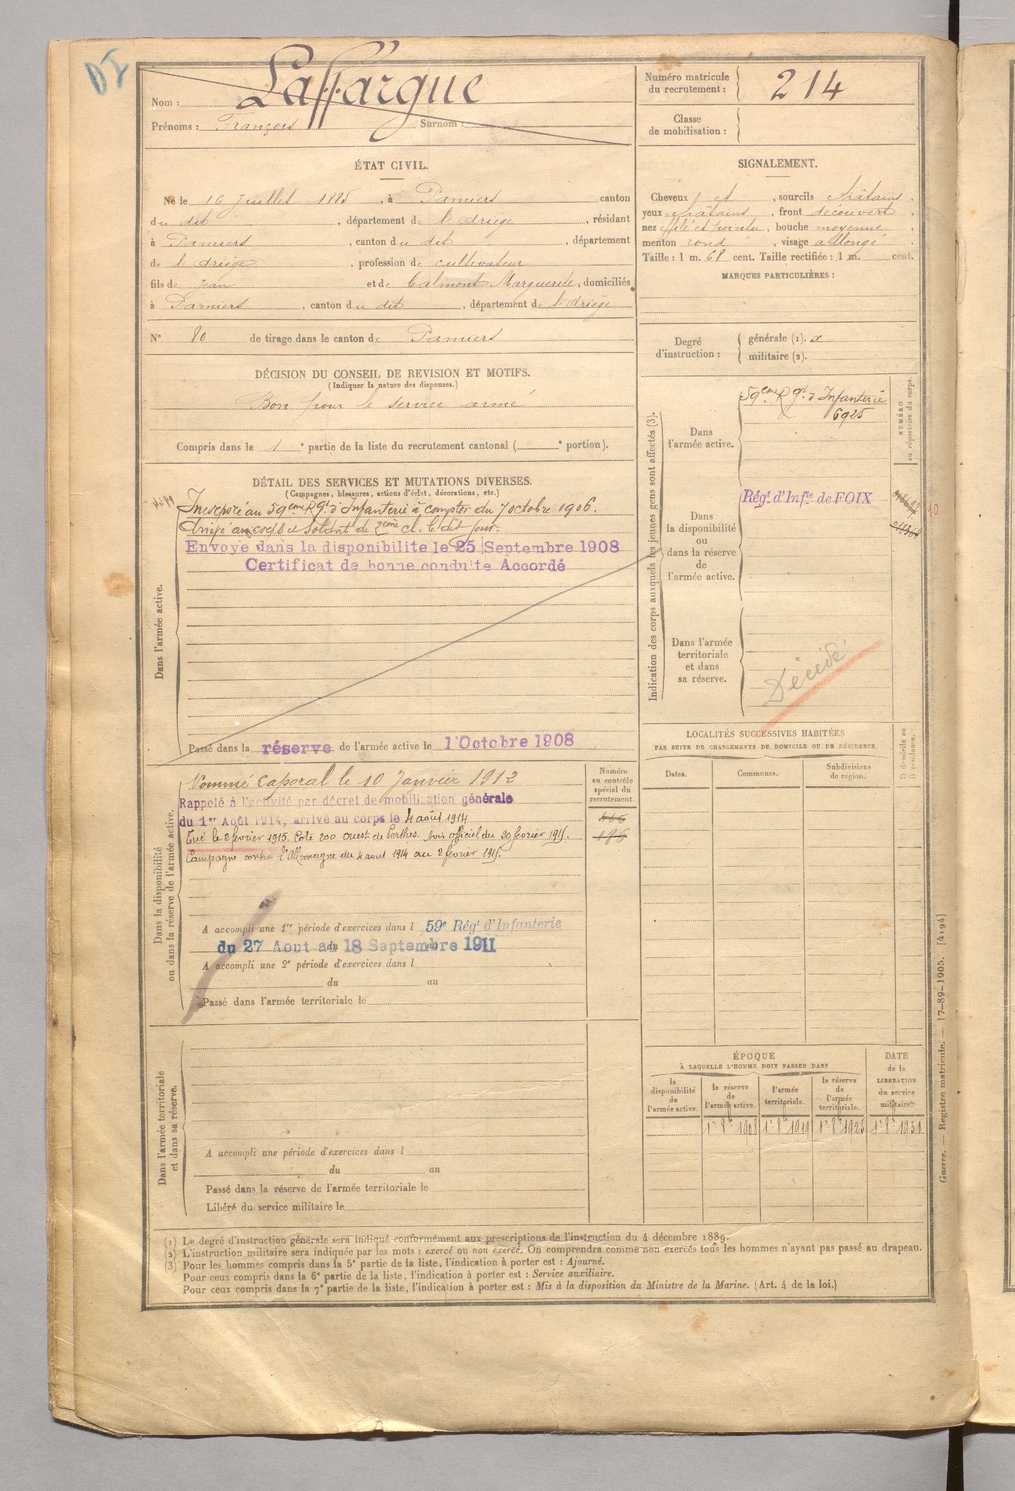 Nom : Laffargue
Prénoms : François Surnom :
Numéro matricule
du recrutement : 214
Classe
de mobilisation :
ÉTAT CIVIL.
Né le 16 Juillet 1885, à Pamiers canton
du dit, département de l'Ariège, résidant
à Pamiers, canton du dit, département
de l'Ariège, profession de cultivateur
fils de Jean et de Calmont Marguerite, domiciliés
à Pamiers, canton du dit, département de l'Ariège
N° 80 de tirage dans le canton de Pamiers
SIGNALEMENT.
Cheveux et, sourcils châtains,
yeux châtains, front découvert,
nez effilé et pointu, bouche moyenne,
menton rond, visage allongé.
Taille : 1 m. 68 cent. Taille rectifiée : 1 m. cent.
MARQUES PARTICULIÈRES :
Degré
d'instruction :
générale (1). 2
militaire (2).
DÉCISION DU CONSEIL DE REVISION ET MOTIFS.
(Indiquer la nature des dispenses.)
Bon pour le service armé
Compris dans la 1e partie de la liste du recrutement cantonal ( e portion).
DÉTAIL DES SERVICES ET MUTATIONS DIVERSES.
(Campagnes, blessures, actions d'éclat, décorations, etc.)
Dans l'armée active.
Incorporé au 59ème Rgt d'Infanterie à compter du 7 octobre 1906.
Arrivé au corps et soldat de 2ème cl. le dit jour.
Envoyé dans la disponibilite le 25 Septembre 1908
Certificat de bonne conduite Accordé
Passé dans la réserve de l'armée active le 1 Octobre 1908
Indication des corps auxquels les jeunes gens sont affectés (3).
Dans
l'armée active.
59ème Rgt d'Infanterie
6925
NUMÉRO
au répertoire du corps.
Dans
la disponibilité
ou
dans la réserve
de
l'armée active.
Régt d'Infie de FOIX
Dans l'armée
territoriale
et dans
sa réserve.
Décédé
Dans la disponibilité
ou dans la réserve de l'armée active.
Nommé Caporal le 10 Janvier 1912
Rappelé à l'activité par décret de mobilisation générale
du 1er Août 1914, arrivé au corps le 4 août 1914
Tué le 2 février 1915. Cote 200 ouest de Perthes. Avis officiel du 20 février 1915.
Campagne contre l'Allemagne du 4 août 1914 au 2 février 1915.
A accompli une 1re période d'exercices dans l 59e Régt d'Infanterie
du 27 Aout au 18 Septembre 1911
A accompli une 2e période d'exercices dans l
du au
Passé dans l'armée territoriale le
Numéro
au contrôle
spécial du
recrutement.
LOCALITÉS SUCCESSIVES HABITÉES
PAR SUITE DE CHANGEMENTS DE DOMICILE OU DE RÉSIDENCE.
Dates. Communes. Subdivisions
de région.
D domicile ou
R résidence.
Dans l'armée territoriale
et dans sa réserve.
A accompli une période d'exercices dans l
du au
Passé dans la réserve de l'armée territoriale le
Libéré du service militaire le
ÉPOQUE
À LAQUELLE L'HOMME DOIT PASSER DANS
DATE
de la
LIBÉRATION
du service
militaire.
la
disponibilité
de
l'armée active.
la réserve
de
l'armée active.
l'armée
territoriale.
la réserve
de
l'armée
territoriale.
1er 8bre 1908 1er 8bre 1919 1er 8bre 1925 1er 8bre 1931
(1) Le degré d'instruction générale sera indiqué conformément aux prescriptions de l'instruction du 4 décembre 1889.
(2) L'instruction militaire sera indiquée par les mots : exercé ou non exercé. On comprendra comme non exercés tous les hommes n'ayant pas passé au drapeau.
(3) Pour les hommes compris dans la 5e partie de la liste, l'indication à porter est : Ajourné.
Pour ceux compris dans la 6e partie de la liste, l'indication à porter est : Service auxiliaire.
Pour ceux compris dans la 7e partie de la liste, l'indication à porter est : Mis à la disposition du Ministre de la Marine. (Art. 4 de la loi.)
Guerre. — Registre matricule. — 17-89-1905. [4194]